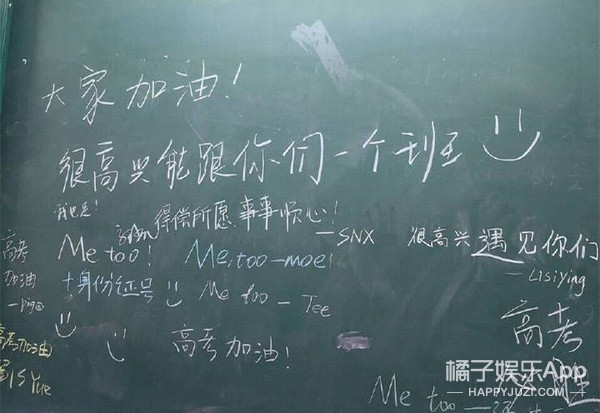 大家加油！
很高兴能跟你们一个班
我也是！
得偿所愿 事事顺心！
—SNX
Me too！
Me too—moe！
很高兴遇见你们
— Lisiying
高考
加油
+身份证号
Me too — Tee
高考加油！
高考加油
高考
必胜
Me too
橘子娱乐App
HAPPYJUZI.COM